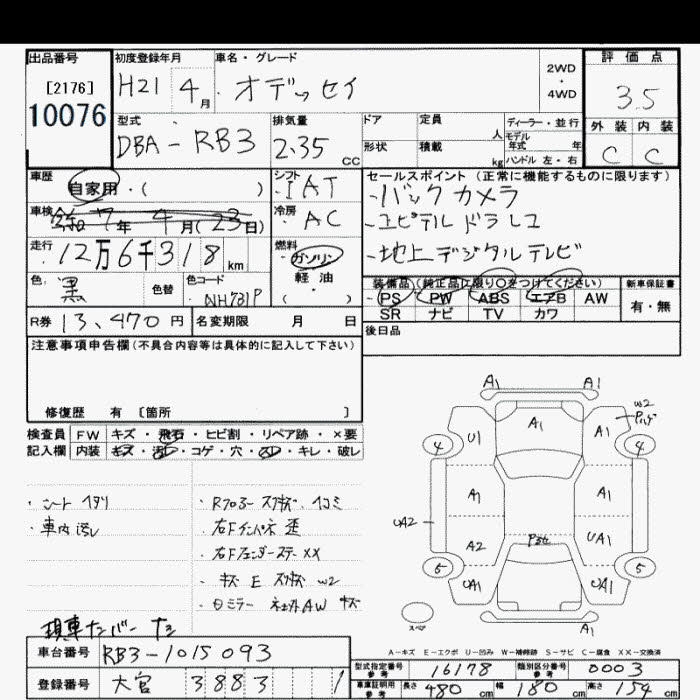 出品番号 初度登録年月 車名・グレード 評価点
[2176] H21 4月 オデッセイ 2WD・4WD 3.5
10076
型式 排気量 ドア 定員 人 ディーラー・並行 外装 内装
DBA-RB3 2.35 CC 形状 積載 kg モデル年式 年 ハンドル 左・右 C C
車歴 自家用・( ) シフト IAT セールスポイント (正常に機能するものに限ります)
・バックカメラ
車検 7年 4月(23日) 冷房 AC ・ユピテル ドラレコ
走行 12万6千318km 燃料 ガソリン 軽油 ・( ) ・地上デジタルテレビ
色 黒 色替 色コード NH731P
装備品 (純正品に限り○をつけてください) 新車保証書
PS PW ABS エアB AW 有・無
SR ナビ TV カワ
R券 13,470円 名変期限 月 日 後日品
注意事項申告欄(不具合内容等は具体的に記入して下さい)
修復歴 有 〔箇所 〕
検査員 FW キズ・飛石・ヒビ割・リペア跡・×要
記入欄 内装 キズ・汚レ・コゲ・穴・スレ・キレ・破レ
・シート
・車内汚レ
・右Fインパネ
・右Fフェンダーステー XX
・キズ E W2
・ミラー 社外AW キズ
A1 A1
W2
4 U1 A1 A1 4
A1 A1
UA2 A2 UA1
5 UA1 UA1 5
スペア A1
A-キズ E-エクボ U-凹み W-補修跡 S-サビ C-腐食 XX-交換済
現車ナンバーナシ
車台番号 RB3-1015093
型式指定番号 参考 16178 類別区分番号 参考 0003
登録番号 大宮 3883 1
車庫証明用 参考 長さ 480cm 幅 180cm 高さ 154cm